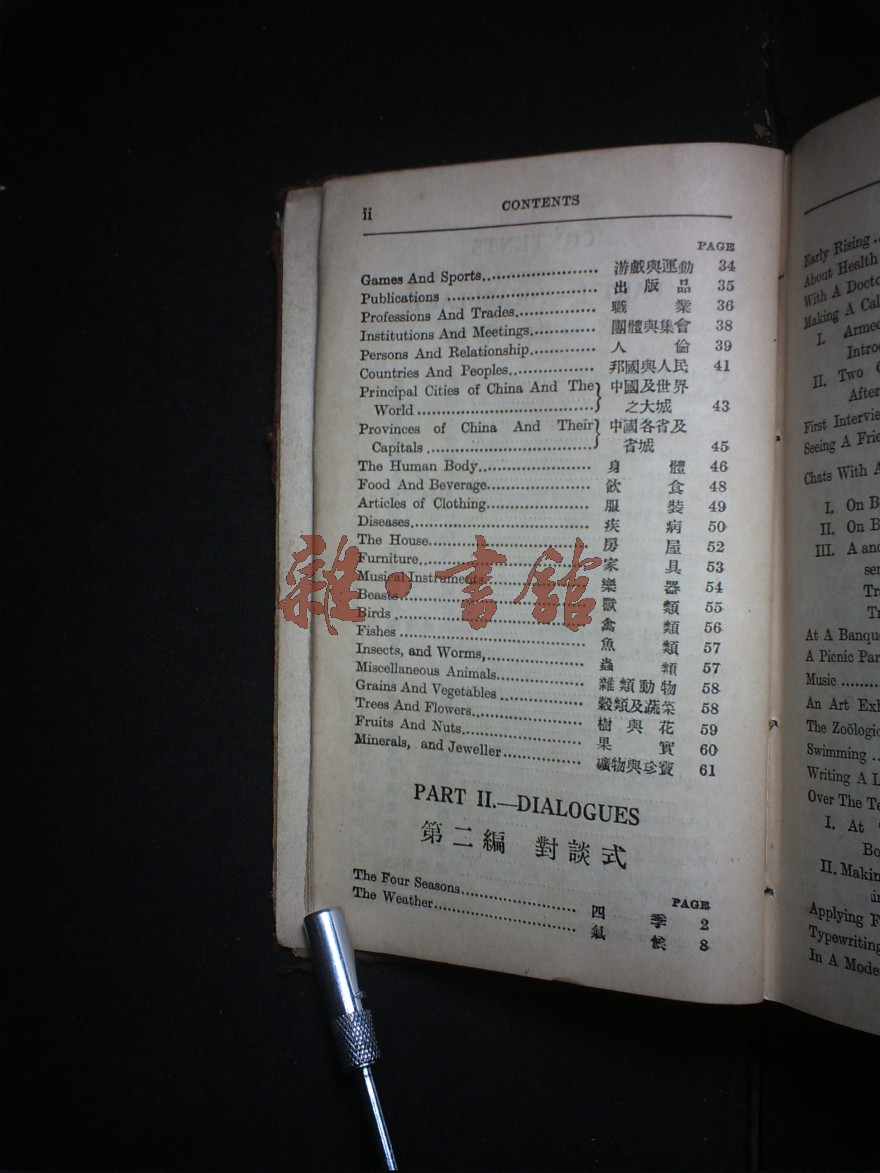 ii CONTENTS
PAGE
Games And Sports 游戲與運動 34
Publications 出版品 35
Professions And Trades 職業 36
Institutions And Meetings 團體與集會 38
Persons And Relationship 人倫 39
Countries And Peoples 邦國與人民 41
Principal Cities of China And The 中國及世界
World 之大城 43
Provinces of China And Their 中國各省及
Capitals 省城 45
The Human Body 身體 46
Food And Beverage 飲食 48
Articles of Clothing 服裝 49
Diseases 疾病 50
The House 房屋 52
Furniture 家具 53
Musical Instruments 樂器 54
Beasts 獸類 55
Birds 禽類 56
Fishes 魚類 57
Insects, and Worms, 蟲類 57
Miscellaneous Animals 雜類動物 58
Grains And Vegetables 穀類及蔬菜 58
Trees And Flowers 樹與花 59
Fruits And Nuts 果實 60
Minerals, and Jeweller 礦物與珍寶 61
雜·書館
PART II.—DIALOGUES
第二編 對談式
PAGE
The Four Seasons 四季 2
The Weather 氣候 8
Early Rising
About Health
With A
Making A
I.
II. Two
After
First
Seeing A
Chats With
I. On
II. On
III. A
At A
A Picnic
Music
An Art
The
Swimming
Writing A
Over The
I. At
II.
Applying
Typewriting
In A